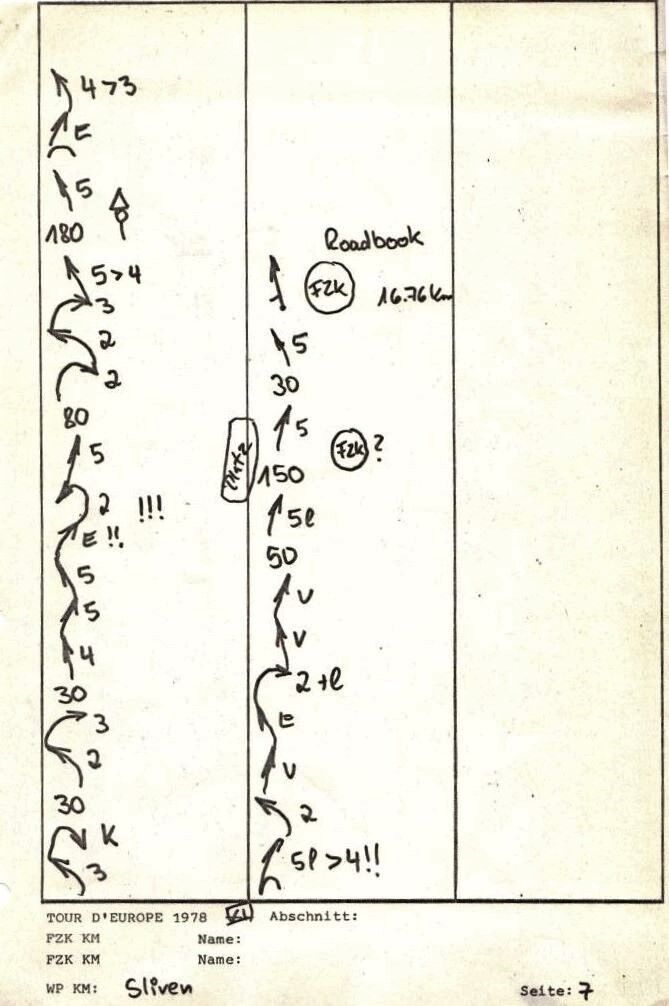 4>3
E
5
180
5>4
3
2
2
80
5
2 !!!
E !!
5
5
4
30
3
2
30
K
3
Roadbook
FZK
16.76 km
5
30
5
FZK ?
150
5l
50
V
V
2+l
E
V
2
5l > 4!!
TOUR D'EUROPE 1978 Abschnitt:
FZK KM Name:
FZK KM Name:
WP KM: Sliven Seite: 7